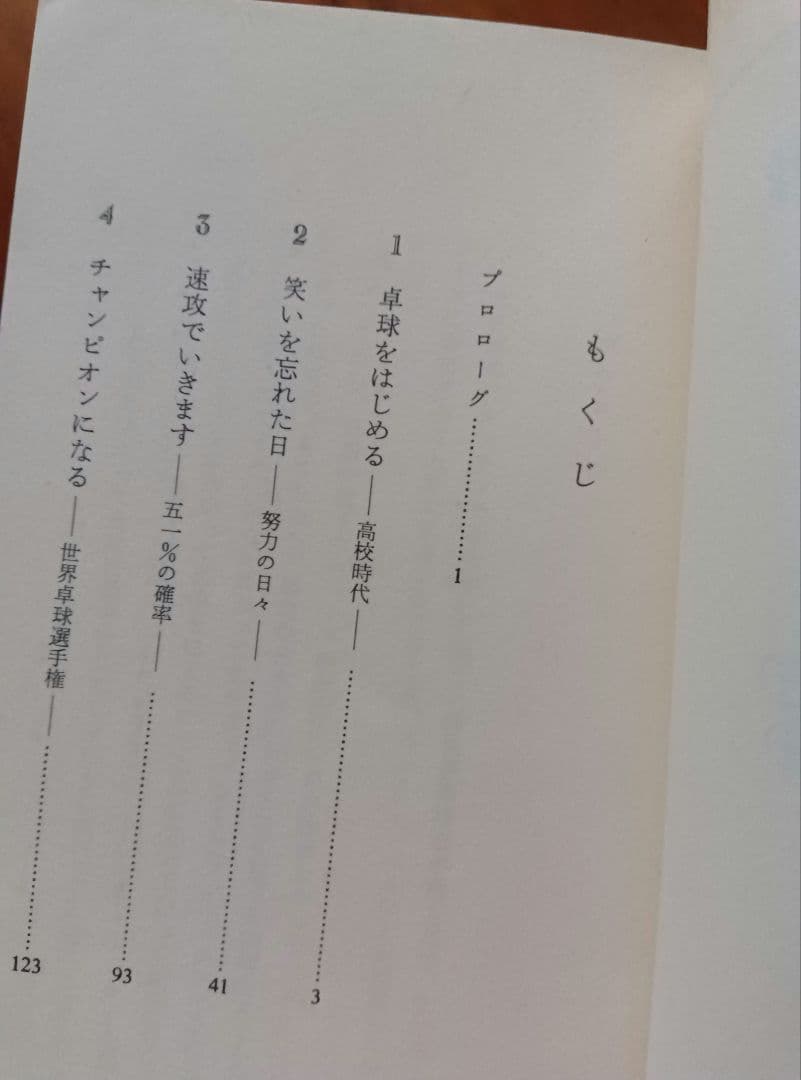 もくじ
プローグ……………………1
1 卓球をはじめる――高校時代――……………………3
2 笑いを忘れた日――努力の日々――……………………41
3 速攻でいきます――五一%の確率――……………………93
4 チャンピオンになる――世界卓球選手権――……………………123